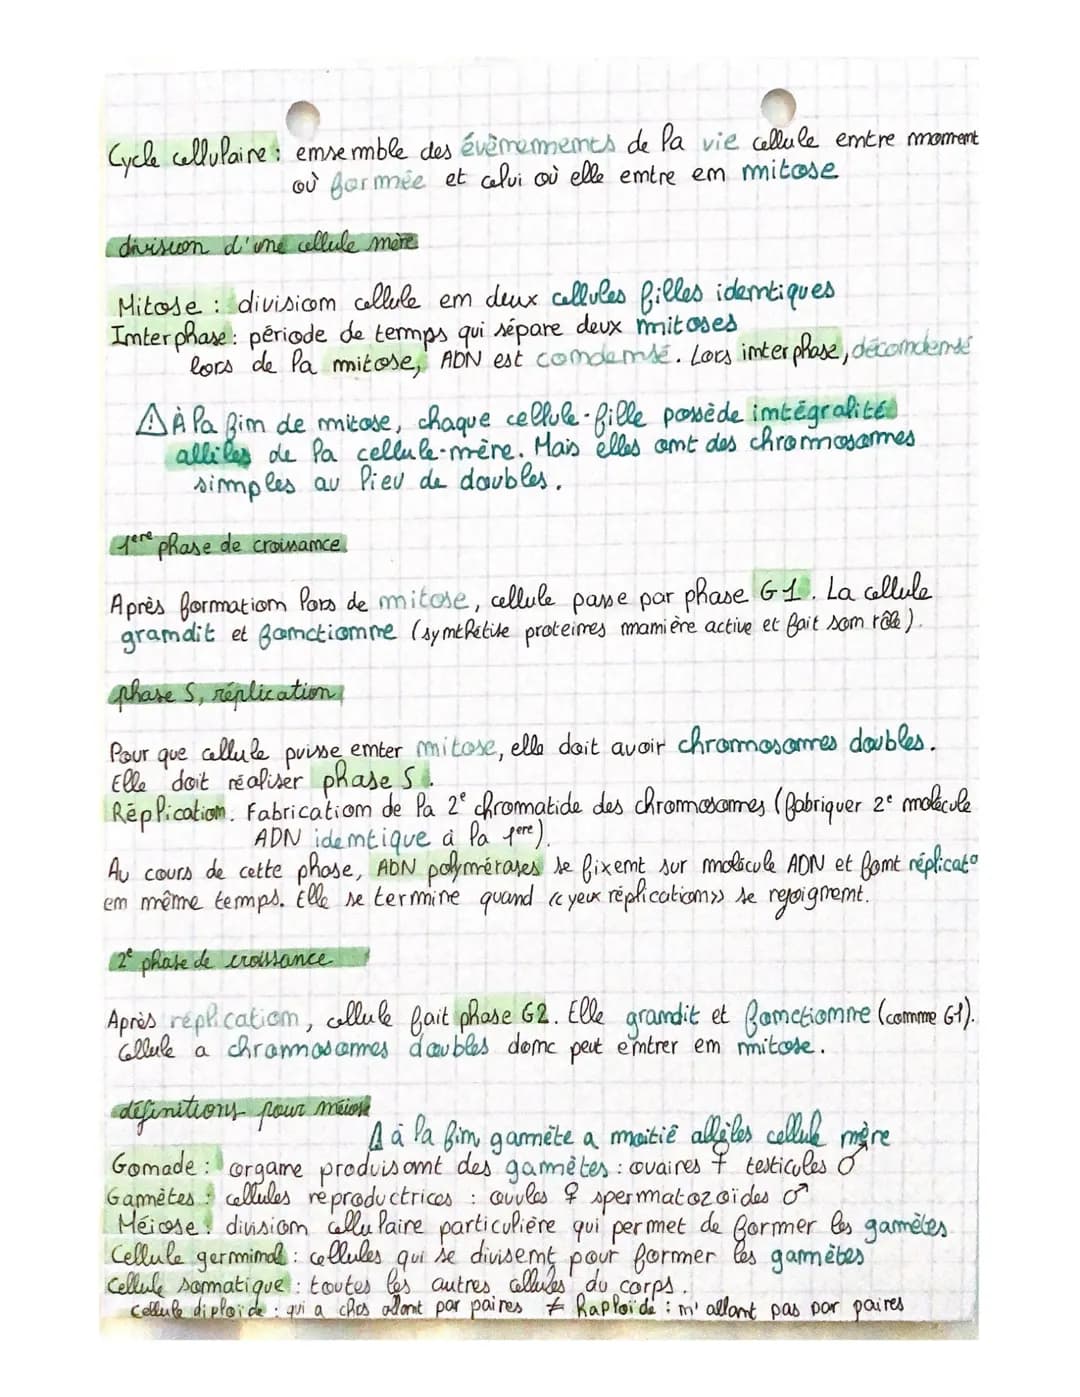 Cycle cellulaire : ensemble des évènements de la vie cellule entre moment
où formée et celui où elle entre en mitose
division d'une cellule mère
Mitose : division cellule en deux cellules filles identiques
Interphase : période de temps qui sépare deux mitoses
lors de la mitose, ADN est condensé. Lors interphase, décondensé
⚠ À la fin de mitose, chaque cellule-fille possède intégralité
allèles de la cellule-mère. Mais elles ont des chromosomes
simples au lieu de doubles.
1ere phase de croissance
Après formation lors de mitose, cellule passe par phase G1. La cellule
grandit et fonctionne (synthétise proteines manière active et fait son rôle).
phase S, réplication
Pour que cellule puisse enter mitose, elle doit avoir chromosomes doubles.
Elle doit réaliser phase S.
Réplication : Fabrication de la 2e chromatide des chromosomes (fabriquer 2e molécule
ADN identique à la 1ere).
Au cours de cette phase, ADN polymérases se fixent sur molécule ADN et font réplicat°
en même temps. Elle se termine quand « yeux réplication » se rejoignent.
2e phase de croissance
Après réplication, cellule fait phase G2. Elle grandit et fonctionne (comme G1).
Cellule a chromosomes doubles donc peut entrer en mitose.
définitions pour méiose
⚠ à la fin, gamète a moitié allèles cellule mère
Gonade : organe produisant des gamètes : ovaires ♀ testicules ♂
Gamètes : cellules reproductrices : ovules ♀ spermatozoïdes ♂
Méiose : division cellulaire particulière qui permet de former les gamètes
Cellule germinal : cellules qui se divisent pour former les gamètes
Cellule somatique : toutes les autres cellules du corps.
Cellule diploïde : qui a chos allant par paires ≠ haploïde : n'allant pas par paires